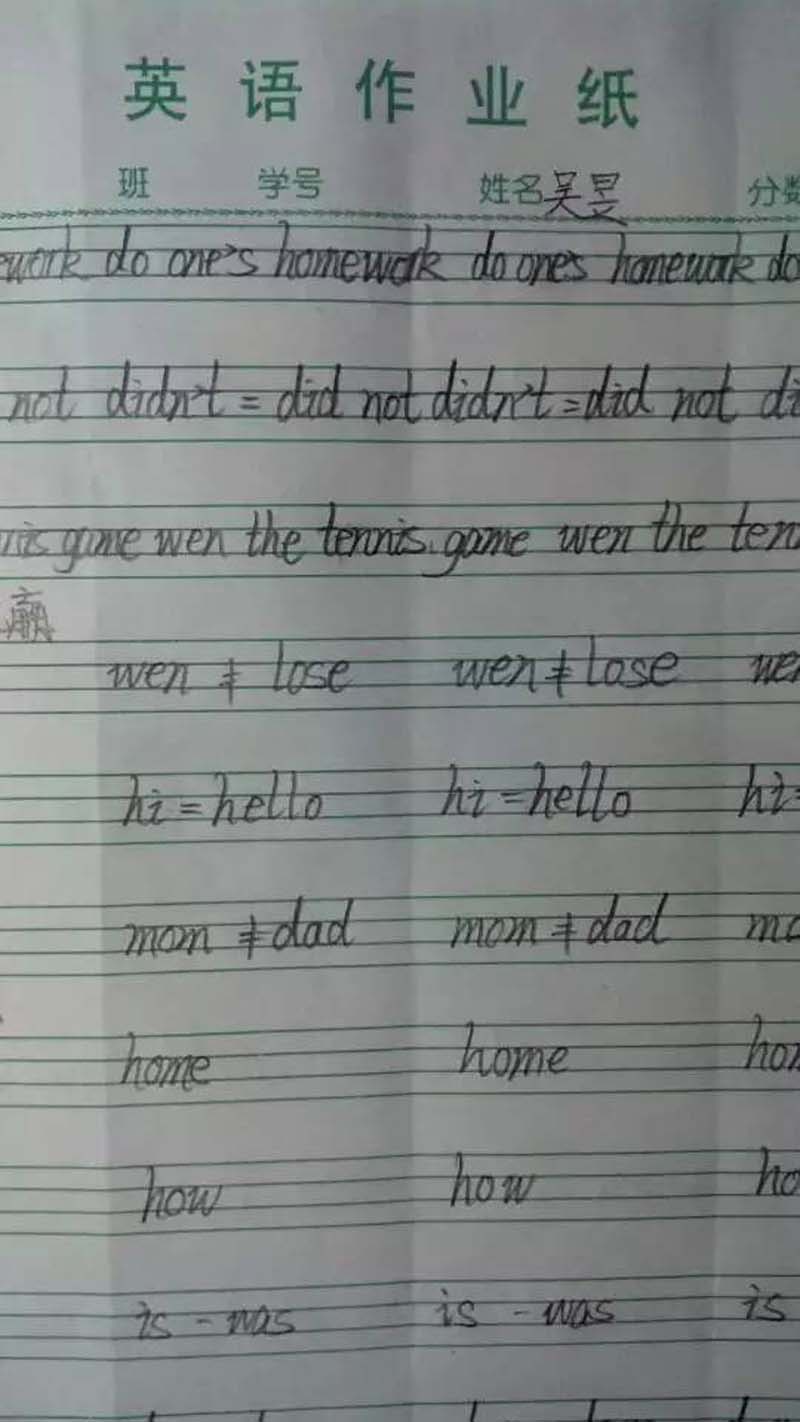 英语作业纸
班 学号 姓名吴昱 分数
work do one's homework do one's homework do
not didn't = did not didn't = did not di
nis game wen the tennis game wen the ten
赢
wen ≠ lose wen ≠ lose wen
hi = hello hi = hello hi =
mom ≠ dad mom ≠ dad mo
home home hom
how how ho
is - was is - was is